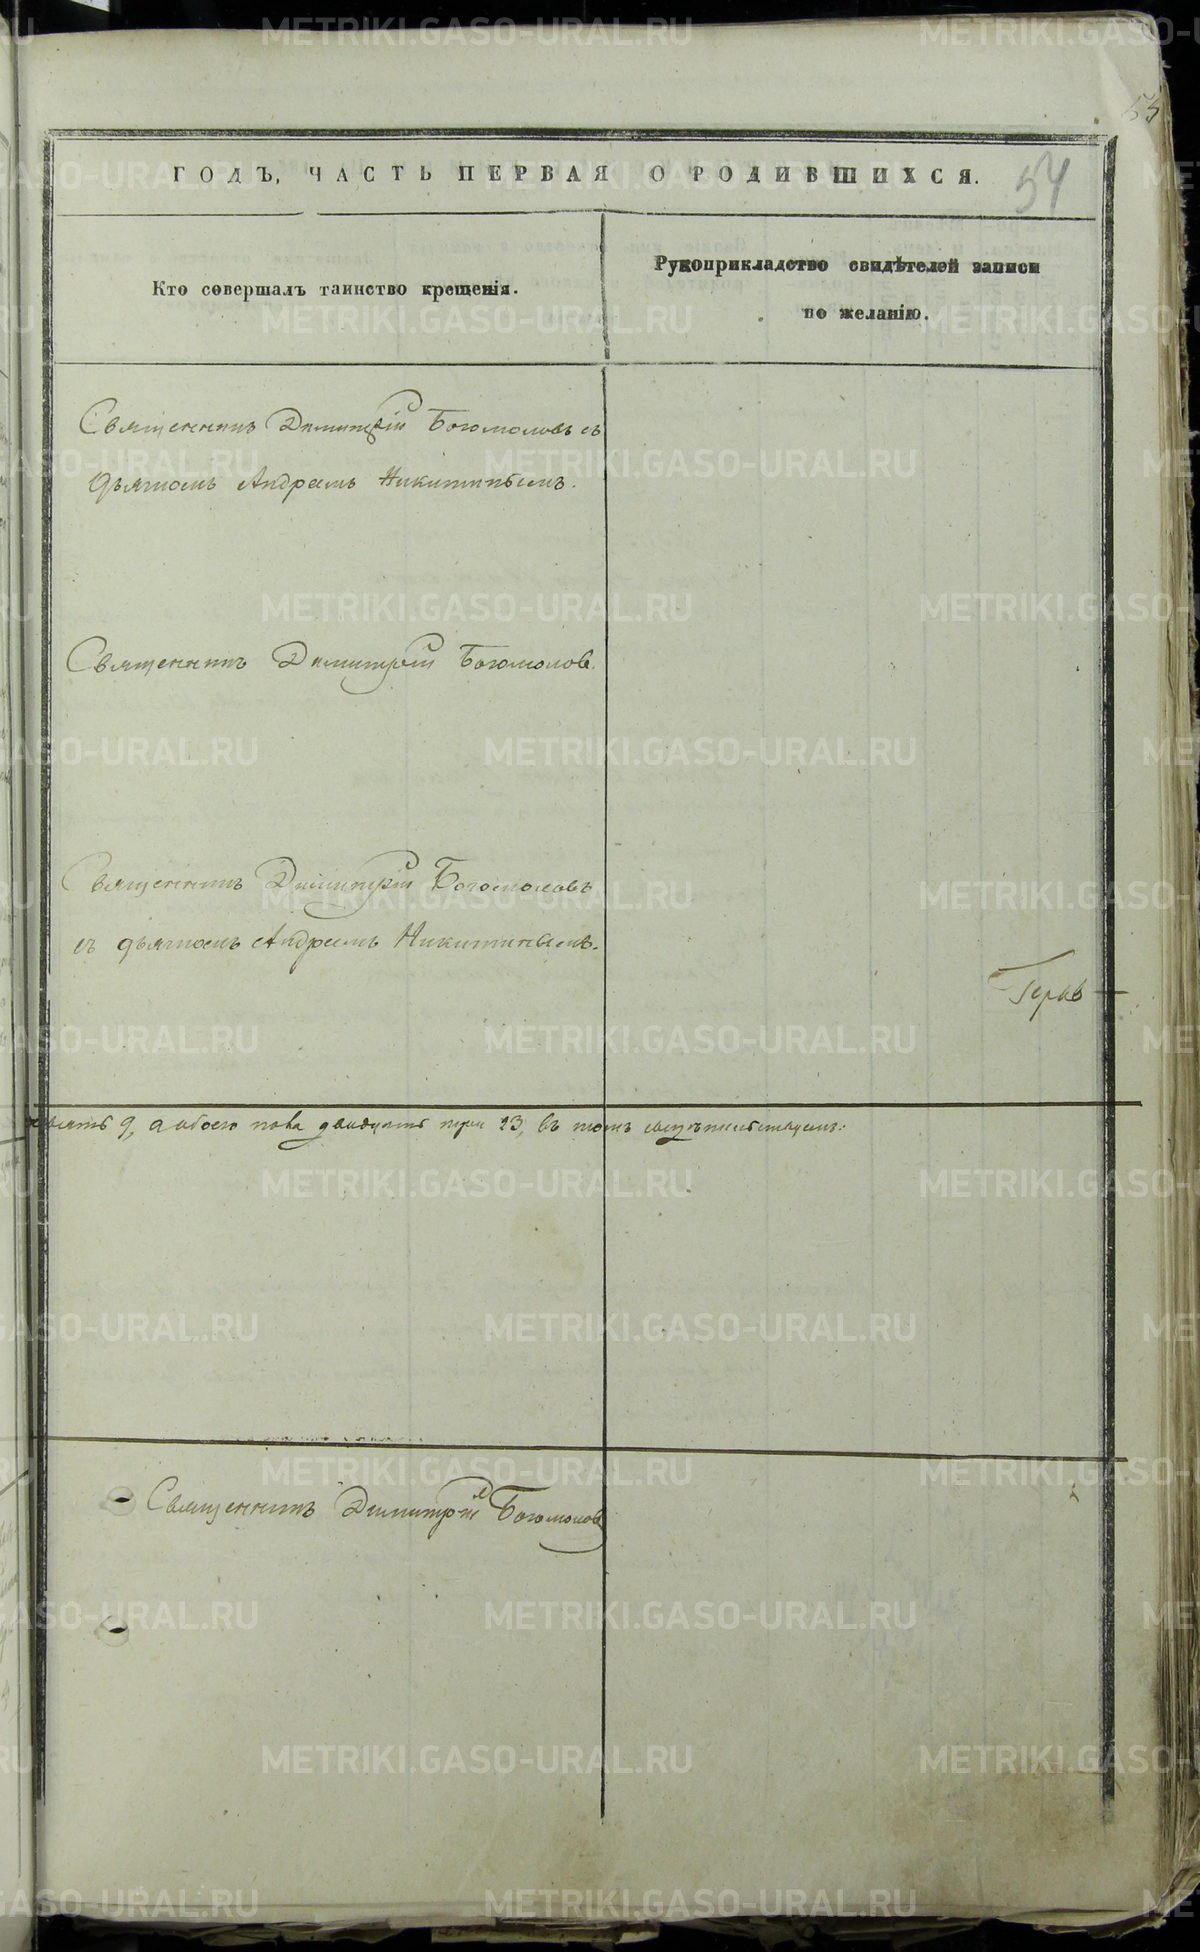 55
54
ГОДЪ, ЧАСТЬ ПЕРВАЯ О РОДИВШИХСЯ.
Кто совершалъ таинство крещенія.
Рукоприкладство свидѣтелей записи
по желанію.
Священникъ Димитрій Богомоловъ съ
дьячкомъ Андреемъ Никитинымъ.
Священникъ Димитрій Богомолов.
Священникъ Димитрій Богомоловъ
съ дьячкомъ Андреемъ Никитинымъ.
9, а обоего пола двадцать три 23, въ томъ свидѣтельствуемъ:
Священникъ Димитрій Богомолов
METRIKI.GASO-URAL.RU